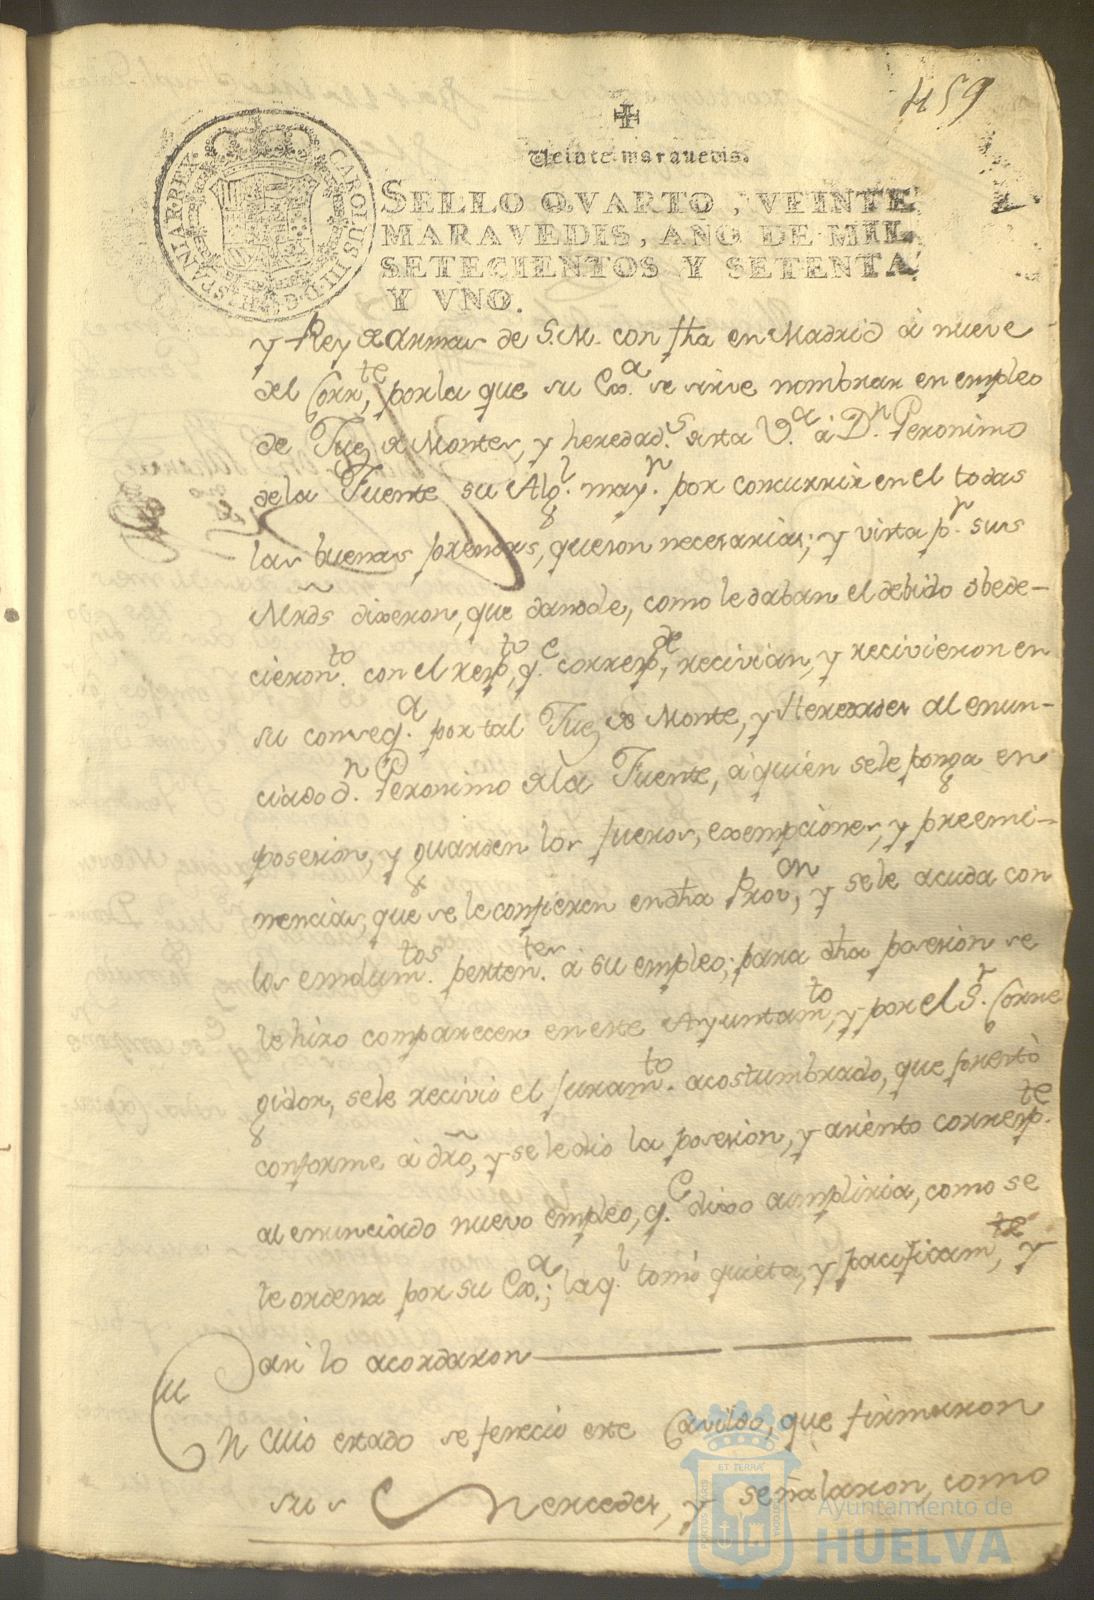 459
Veinte maravedis.
SELLO QVARTO, VEINTE
MARAVEDIS, AÑO DE MIL
SETECIENTOS Y SETENTA
Y VNO.
CAROLUS III D G HISPANIAR REX
y Rey de Armas de S.M. con fha en Madrid à nueve
del Corr.te, por la que su Exa. se sirve nombrar en empleo
de Juez de Montes, y heredad.s de esta V.a à D.n Geronimo
de la Fuente su Alg.l may.r por concurrir en el todas
las buenas prendas, que son necesarias; y vista p.r sus
Mrds dixeron, que dandole, como le daban el debido obede-
cieron.to con el resp.to, q.e corresp.de, recivian, y recivieron en
su conseq.a por tal Juez de Monte, y Heredades al enun-
ciado d.n Geronimo de la Fuente, à quien se le ponga en
posesion, y guarden los fueros, exempciones, y preemi-
nencias, que se le confieren en dha Prov.on, y se le acuda con
los emolum.tos perten.tes à su empleo; para dha posesion se
le hizo comparecer en este Ayuntam.to, y por el S.r Corre
gidor, se le recivió el juram.to acostumbrado, que prestò
conforme à dro, y se le dio la posesion, y asiento corresp.te
al enunciado nuevo empleo, q.e dixo cumpliria, como se
le ordena por su Exa.; la q.l tomò quieta, y pacificam.te, y
asi lo acordaron
En cuio estado se fenecio este Cavildo, que firmaron
sus Mercedes, y señalaron, como
PORTUS MARIS ET TERRÆ CUSTODIA
Ayuntamiento de
HUELVA